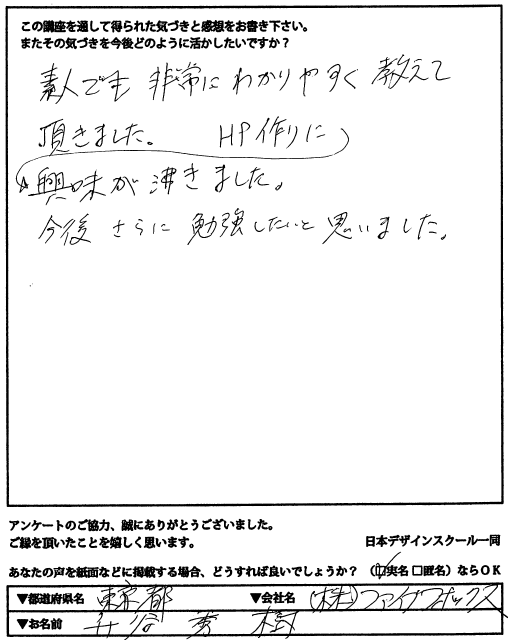 この講座を通して得られた気づきと感想をお書き下さい。
またその気づきを今後どのように活かしたいですか？
素人でも 非常にわかりやすく 教えて
頂きました。 HP作りに
興味が沸きました。
今後 さらに 勉強したいと思いました。
アンケートのご協力、誠にありがとうございました。
ご縁を頂いたことを嬉しく思います。
日本デザインスクール一同
あなたの声を紙面などに掲載する場合、どうすれば良いでしょうか？（☑実名 □匿名）ならOK
▼都道府県名 東京都 ▼会社名 (株)ファイブフォックス
▼お名前 谷 秀樹